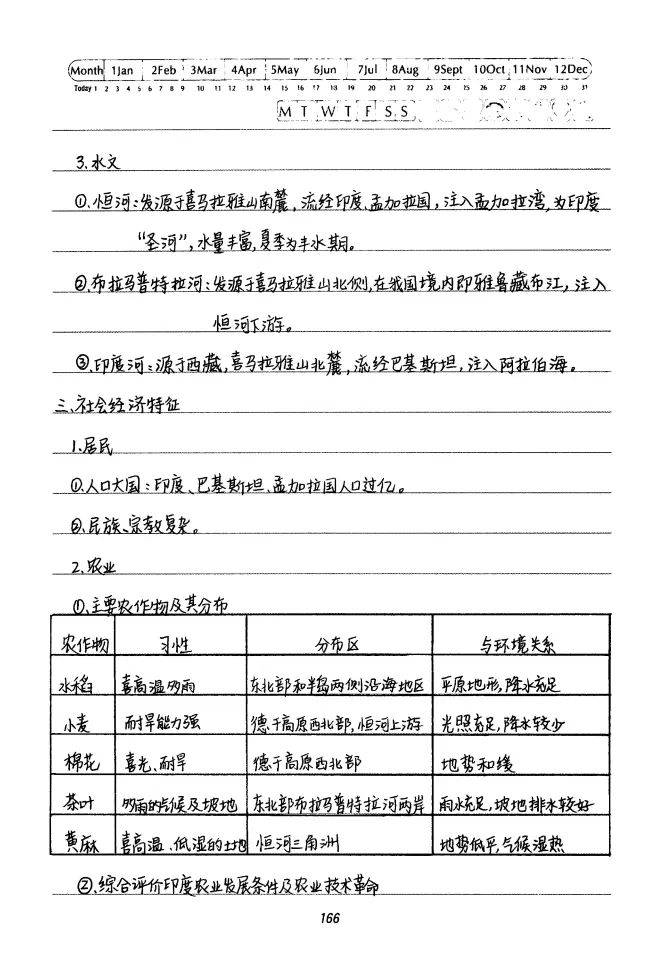 Month 1Jan 2Feb 3Mar 4Apr 5May 6Jun 7Jul 8Aug 9Sept 10Oct 11Nov 12Dec
Today 1 2 3 4 5 6 7 8 9 10 11 12 13 14 15 16 17 18 19 20 21 22 23 24 25 26 27 28 29 30 31
M T W T F S S
3.水文
①.恒河:发源于喜马拉雅山南麓,流经印度、孟加拉国,注入孟加拉湾,为印度
“圣河”,水量丰富,夏季为丰水期。
②.布拉马普特拉河:发源于喜马拉雅山北侧,在我国境内即雅鲁藏布江,注入
恒河下游。
③.印度河:源于西藏,喜马拉雅山北麓,流经巴基斯坦,注入阿拉伯海。
三、社会经济特征
1.居民
①.人口大国:印度、巴基斯坦、孟加拉国人口过亿。
②.民族、宗教复杂。
2.农业
①.主要农作物及其分布
农作物 习性 分布区 与环境关系
水稻 喜高温多雨 东北部和半岛两侧沿海地区 平原地形,降水充足
小麦 耐旱能力强 德干高原西北部,恒河上游 光照充足,降水较少
棉花 喜光、耐旱 德干高原西北部 地势和缓
茶叶 多雨的气候及坡地 东北部布拉马普特拉河两岸 雨水充足,坡地排水较好
黄麻 喜高温、低湿的土地 恒河三角洲 地势低平,气候湿热
②.综合评价印度农业发展条件及农业技术革命
166